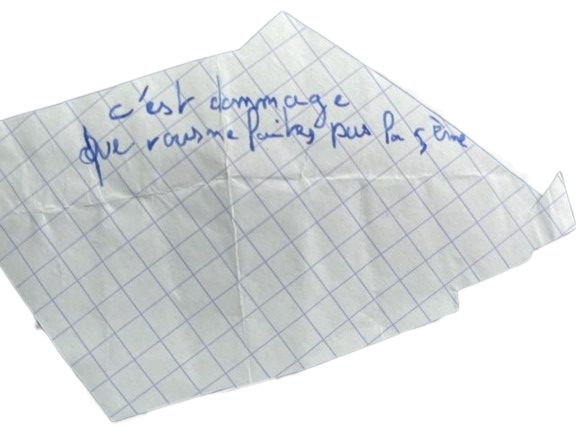 c'est dommage
que vous ne faites pas la 5ème